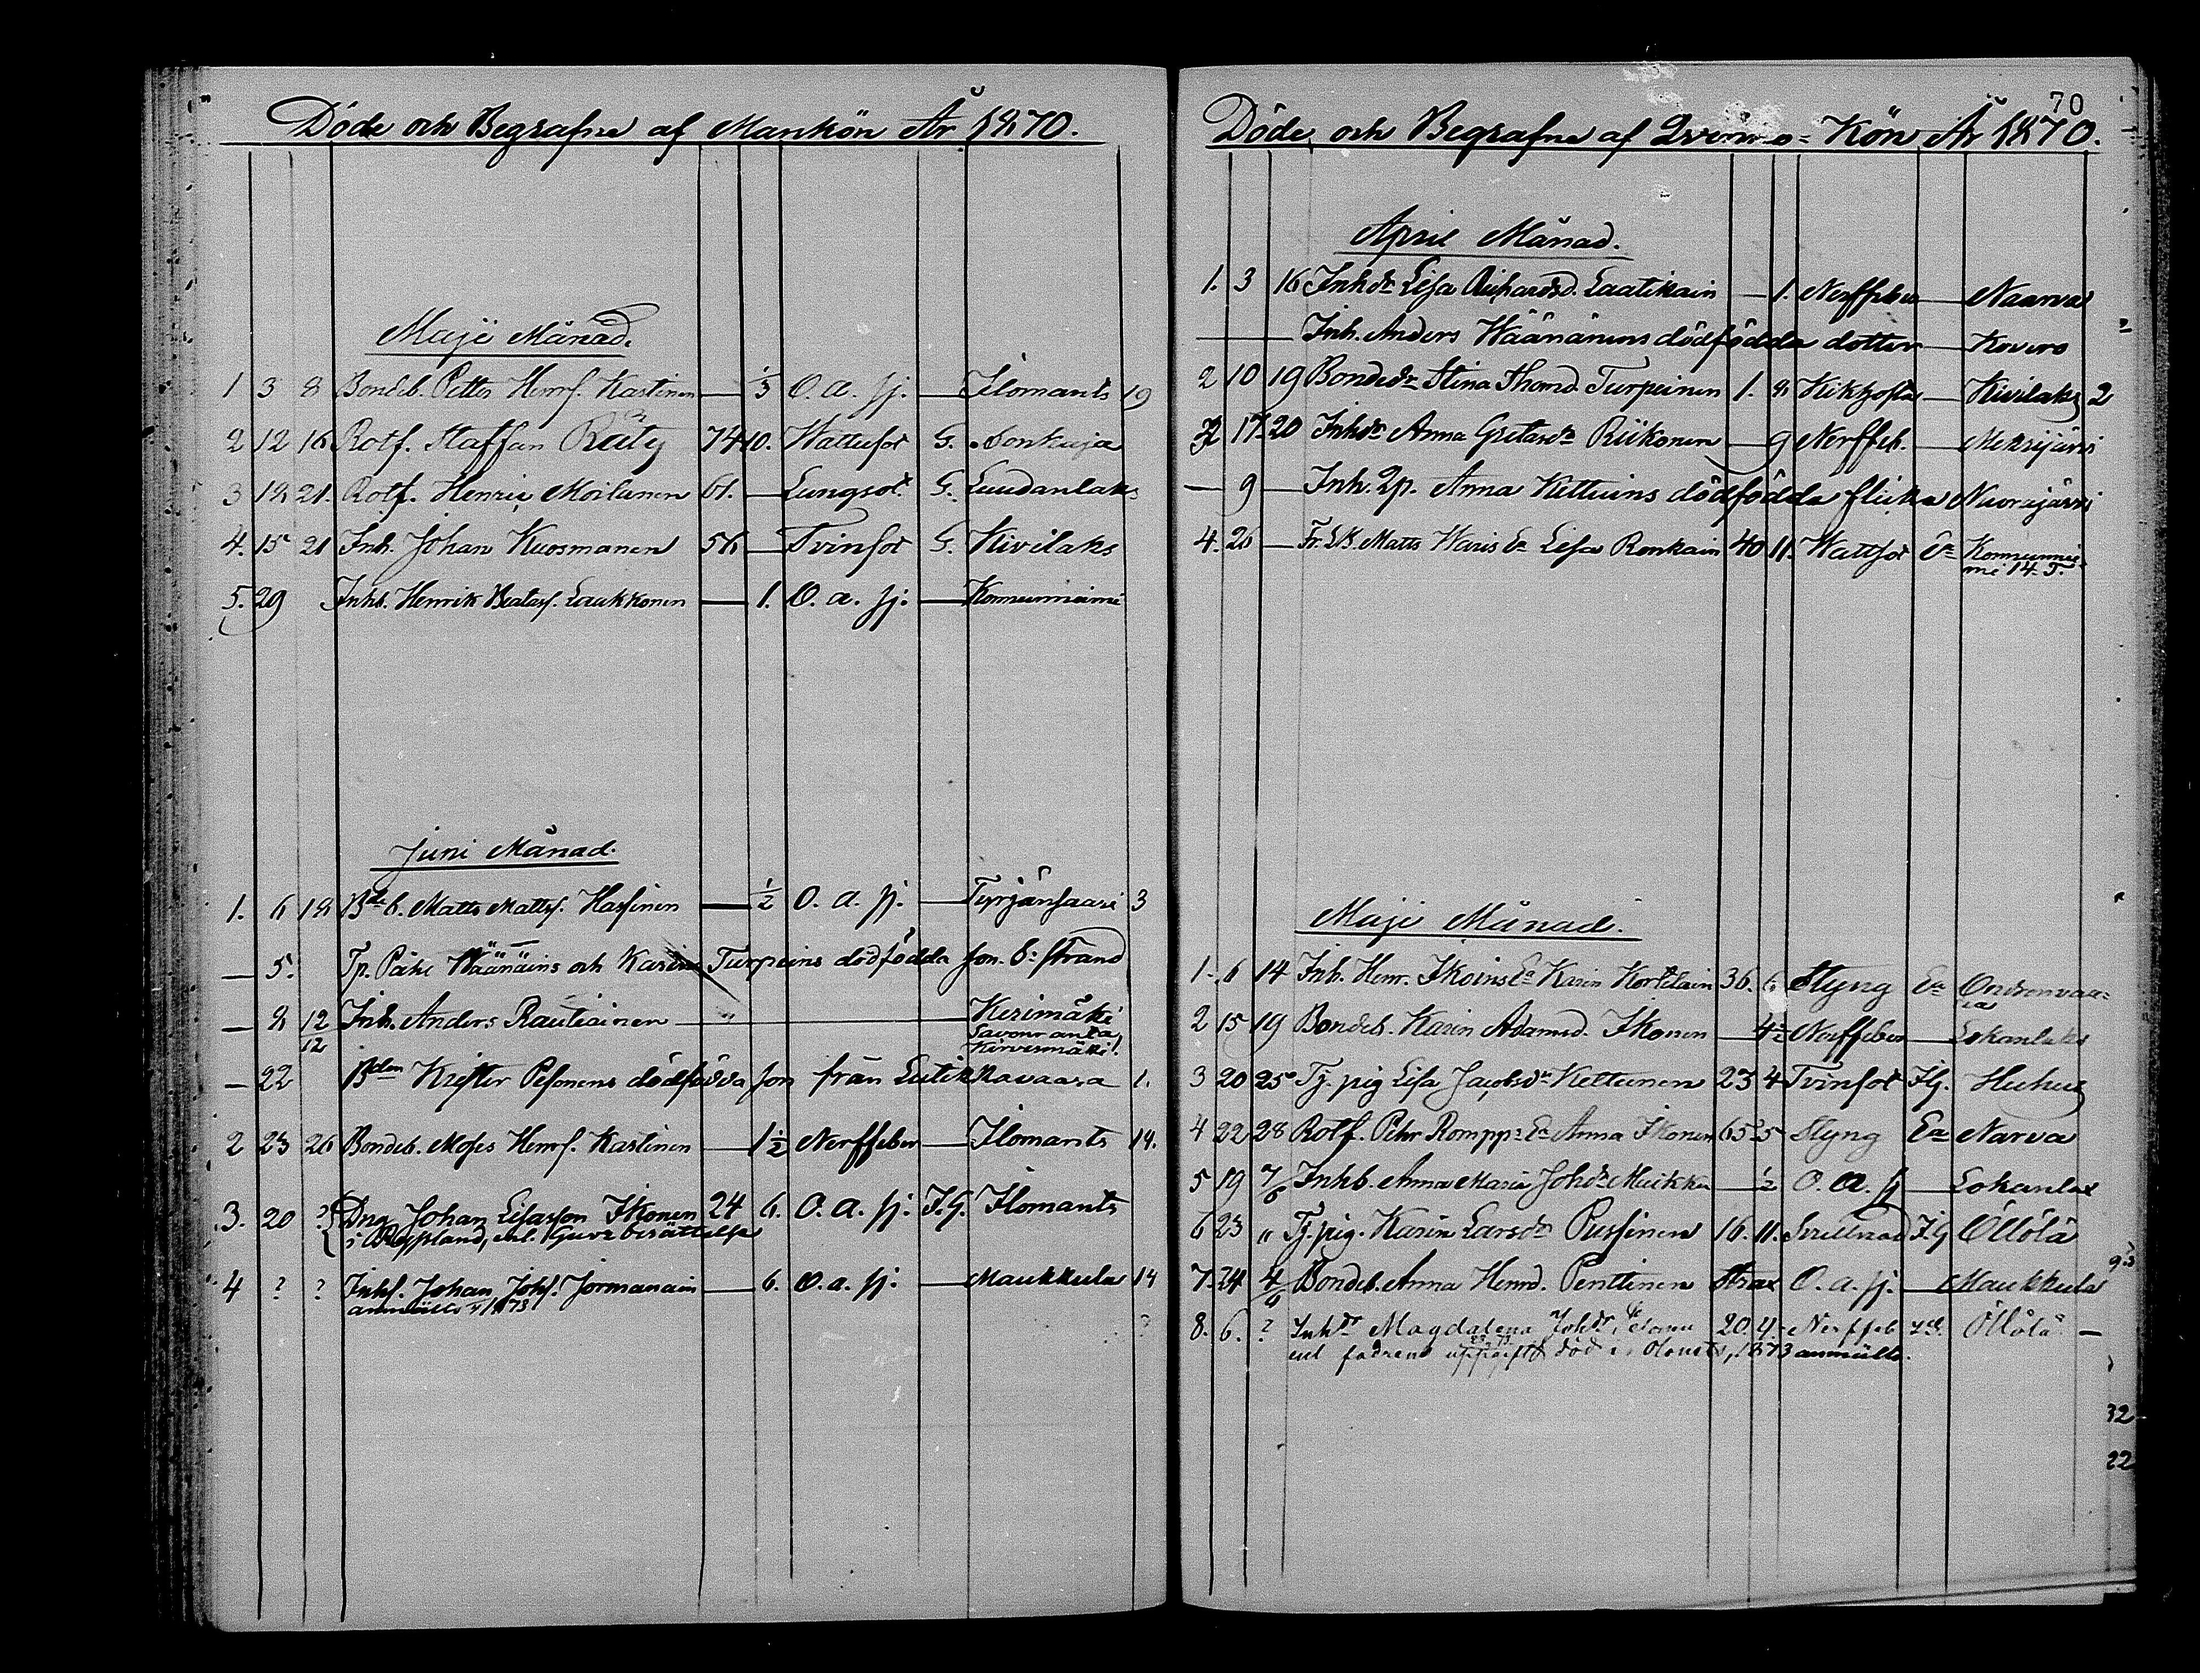 Döde och Begrafne af Mankön År 1870.
Maji Månad.
1 3 8 Bondeb. Petter Henrs. Kastinen — 1/3 O. a. sj. — Ilomants 19
2 12 16 Rotf. Staffan 74 10. Wattusot G. Sonkaja
3 18 21. Rotf. Henric Moilanen 61. — Lungsot. G. Luudanlaks
4. 15 21 Inh. Johan Kuosmanen 56 — Tvinsot G. Kivilaks
5. 29 Inhb. Henrik Beatas. Laukkonen — 1. O. a. sj. — Konnunniemi
Juni Månad.
1. 6 18 Bdeb. Matts Mattss. Hassinen — 1/2 O. a. sj. — Tyrjänsaari 3
— 5. Tp. Wäänäins och Karin Turpeins dödfödda son. Ö: strand
— 8 12/12 Inh. Anders Rautiainen — Kerimäki
Savonranta
Kirvesmäki!
— 22 Bden Krister Pesonens dödfödda son från Eutikkavaara 1.
2 23 26 Bondeb. Moses Henrs. Kastinen — 1 1/2 Nerffeber — Ilomants 14.
3. 20 ? Dng Johan Lisasson Ikonen 24 6. O. a. sj. I. G. Ilomants
i Ryssland, enl. Guvr berättelse
4 ? ? Inhs. Johan Johs. Jormanain — 6. O. a. sj. — Maukkula 14
anmäldt 1873
70
Döde och Begrafne af Qvinno-Kön År 1870.
April Månad.
1. 3 16 Inhdr Lisa Richardsd. Laatikain — 1. Nerffeber — Naarva
— Inh. Anders Wäänänens dödfödda dotter — Kovero
2 10 19 Bondedr Stina Thomd. Turpeinen 1. 8 Kikhosta — Kivilaks 2
3 17 20 Inhdr Anna Gretasdr Riikonen — 9 Nerffeb. — Mekrijärvi
— 9 — Inh. Qp. Anna Kettuins dödfödda flicka Nuorajärvi
4. 26 — Fr. Matts Waris Ea Lisa Ronkain 40 11. Wattsot Ea Konnunnie
mi 14. 5.
Maji Månad.
1. 6 14 Inh. Henr. Ikoins Ea Karin Kortelain 36. 6. Styng Ea Ondronvaa=
ra
2 15 19 Bondeb. Karin Adamsd. Ikonen — 4 Nerffeber — Lokanlaks
3 20 25 Tj. pig Lisa Jacobsdr Kettunen 23 4 Tvinsot I. G. Huhus
4 22 28 Rotf. Pehr Romppas Ea Anna Ikonen 65 5 Styng Ea Narva
5 19 7/6 Inhb. Anna Maria Johdr Muikku — 1/2 O. a. sj — Lokanlax
6 23 " Tj. pig. Karin Larsdr Pussinen 16. 11. Svullnad I. G Öllölä
7. 24 4/6 Bondeb. Anna Henrd. Penttinen strax O. a. sj. — Maukkula
8. 6. ? Inhdr Magdalena Johdr 20. 4. Nerffeb Öllölä —
enl fadrens uppgift död i Olonets, 1873 anmäldt.
32
22